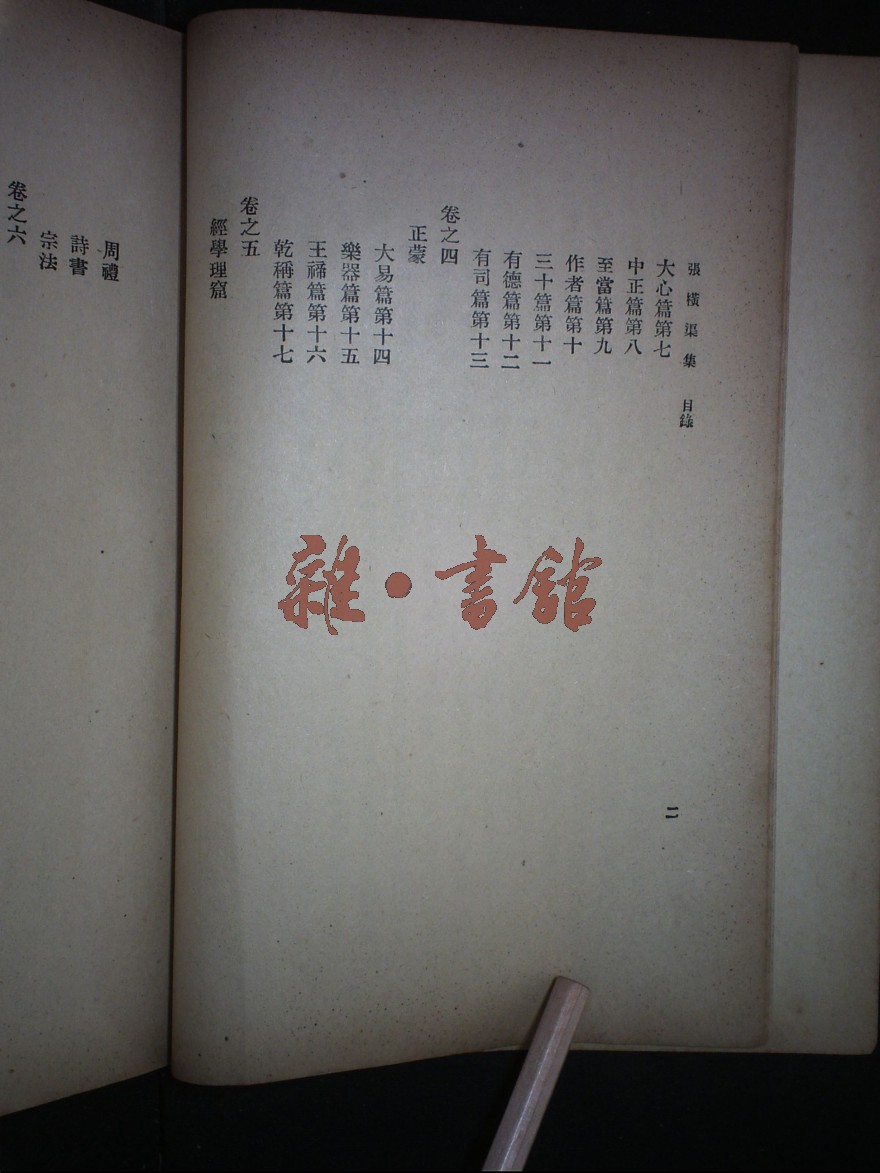 張橫渠集 目錄
大心篇第七
中正篇第八
至當篇第九
作者篇第十
三十篇第十一
有德篇第十二
有司篇第十三
卷之四
正蒙
大易篇第十四
樂器篇第十五
王禘篇第十六
乾稱篇第十七
卷之五
經學理窟
二
周禮
詩書
宗法
卷之六
雜·書館